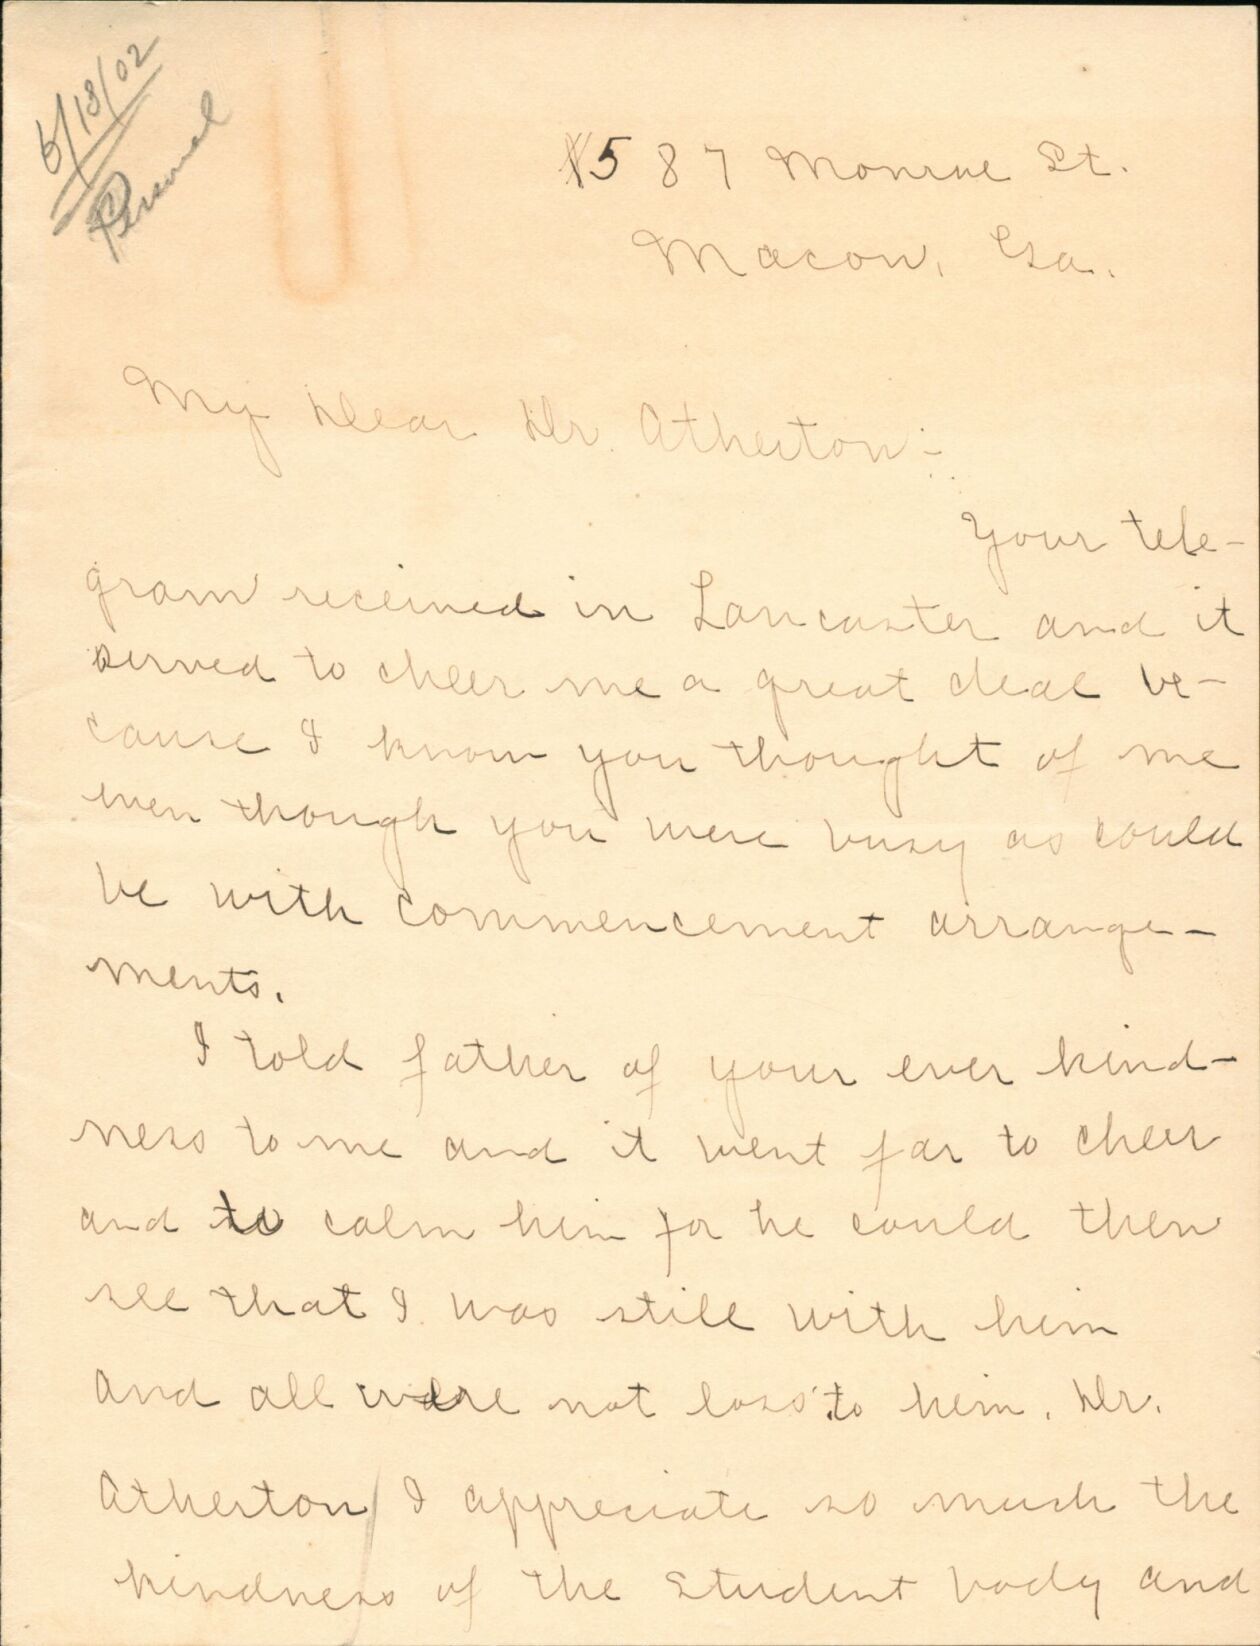 6/13/02
Personal
587 Monroe St.
Macon, Ga.
My Dear Dr. Atherton:-
Your tele-
gram received in Lancaster and it
served to cheer me a great deal be-
cause I know you thought of me
even though you were busy as could
be with commencement arrange-
ments.
I told father of your ever kind-
ness to me and it went far to cheer
and to calm him for he could then
see that I was still with him
and all were not loss to him. Dr.
Atherton, I appreciate so much the
kindness of the Student body and